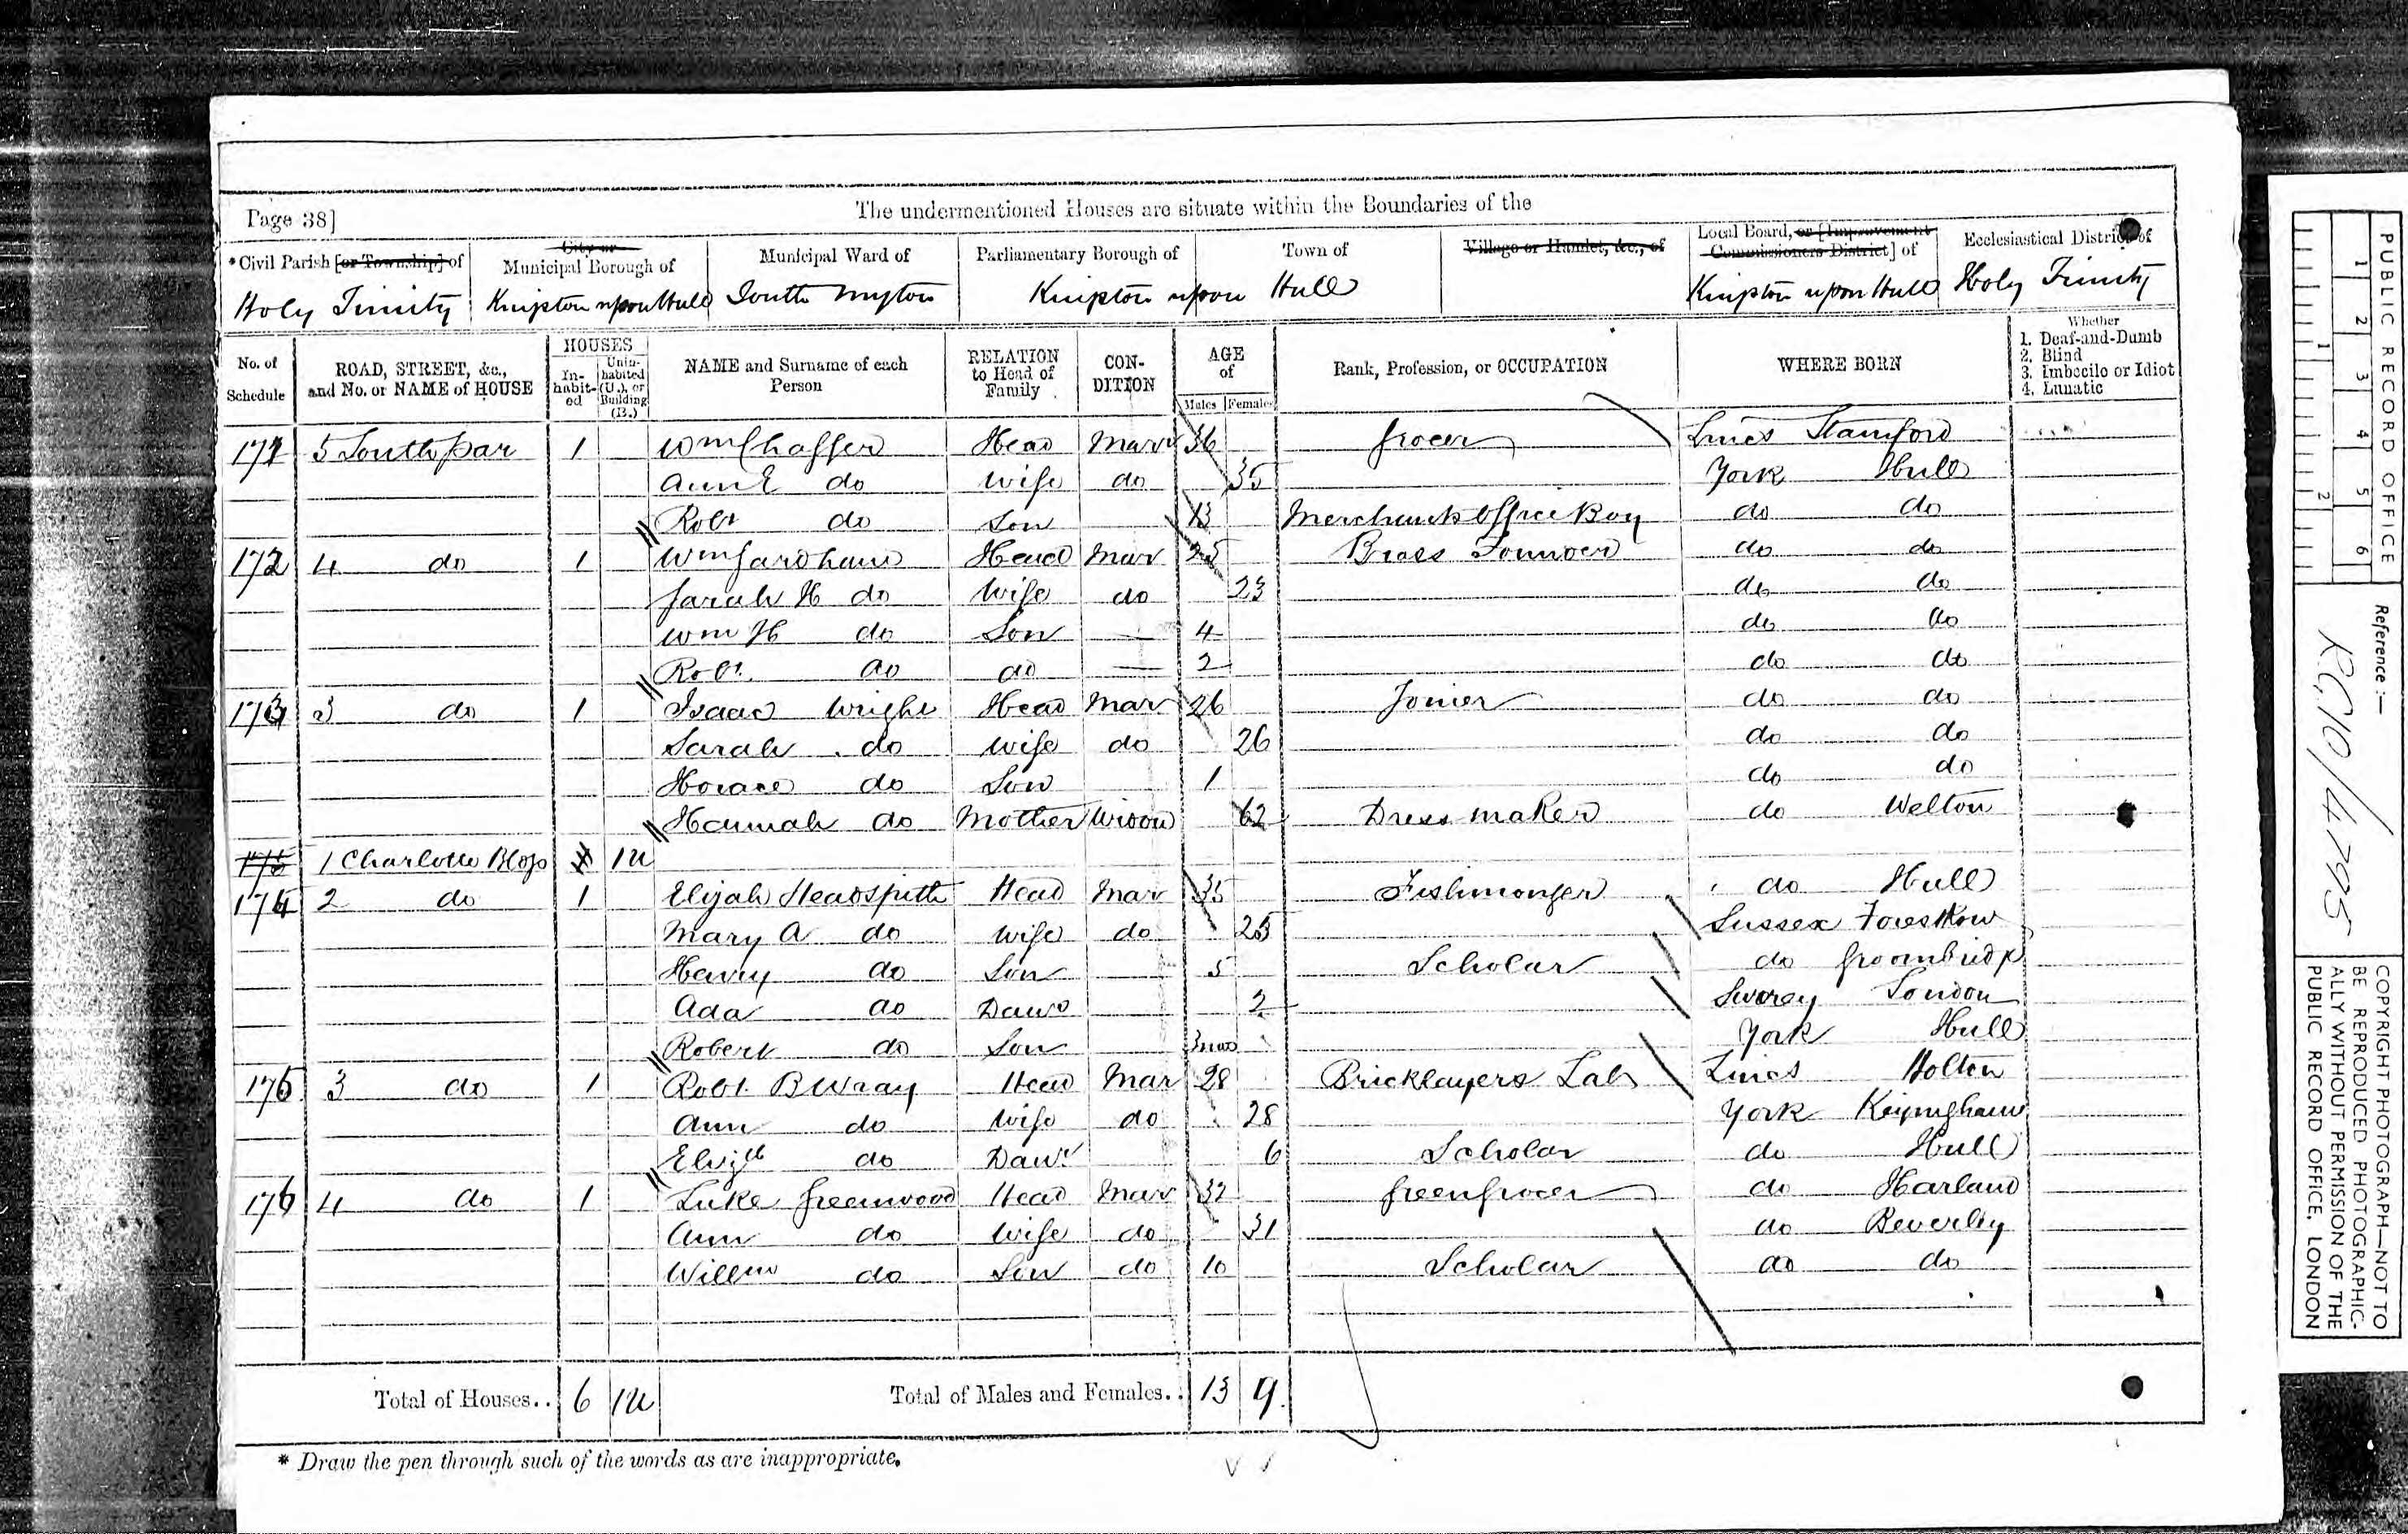 The undermentioned Houses are situate within the Boundaries of the
Page 38]
*Civil Parish [or Township] of
City or Municipal Borough of
Municipal Ward of
Parliamentary Borough of
Town of
Village or Hamlet, &c., of
Local Board, or [Improvement Commissioners District] of
Ecclesiastical District of
Holy Trinity
Kingston upon Hull
South Myton
Kingston upon Hull
Kingston upon Hull
Holy Trinity
No. of Schedule
ROAD, STREET, &c., and No. or NAME of HOUSE
HOUSES
In-habit-ed
Unin-habited (U.), or Building (B.)
NAME and Surname of each Person
RELATION to Head of Family
CON-DITION
AGE of
Males Females
Rank, Profession, or OCCUPATION
WHERE BORN
Whether
1. Deaf-and-Dumb
2. Blind
3. Imbecile or Idiot
4. Lunatic
171 5 South par 1 Wm Chaffer Head Marr 36 Grocer Lincs Stamford
Ann E do Wife do 35 York Hull
Robt do Son 13 Merchants Office Boy do do
172 4 do 1 Wm Jardham Head Mar 25 Brass Founder do do
Sarah H do Wife do 23 do do
Wm H do Son 4 do do
Robt. do do 2 do do
173 3 do 1 Isaac Wright Head Mar 26 Joiner do do
Sarah do Wife do 26 do do
Horace do Son 1 do do
Hannah do Mother Widow 62 Dress maker do Welton
175 1 Charlotte Bldgs 1U
174 2 do 1 Elijah Headspith Head Mar 35 Fishmonger do Hull
Mary A do Wife do 25 Sussex Forest Row
Henry do Son 5 Scholar do Groombridge
Ada do Daur 2 Surrey London
Robert do Son 3mos York Hull
175 3 do 1 Robt. B Wray Head Mar 28 Bricklayers Lab Lincs Holton
Ann do Wife do 28 York Keyingham
Elizth do Daur 6 Scholar do Hull
176 4 do 1 Luke Greenwood Head Mar 32 Greengrocer do Harland
Ann do Wife do 31 do Beverley
Willm do Son do 10 Scholar do do
Total of Houses.. 6 1U Total of Males and Females.. 13 9
* Draw the pen through such of the words as are inappropriate.
PUBLIC RECORD OFFICE
1 2 3 4 5 6
1 2
Reference :—
RG10/4795
COPYRIGHT PHOTOGRAPH—NOT TO
BE REPRODUCED PHOTOGRAPHIC-
ALLY WITHOUT PERMISSION OF THE
PUBLIC RECORD OFFICE, LONDON